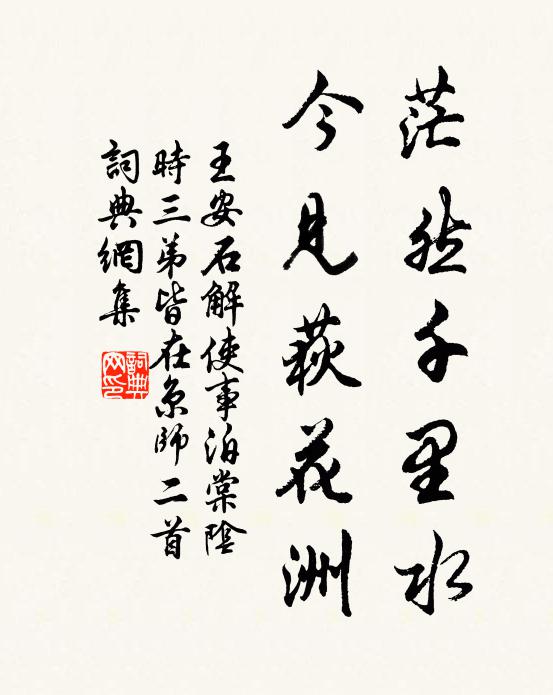 茫然千里水
今見荻花洲
王安石解使事泊棠陰
時三弟皆在京師二首
詞典網集
詞典
网印